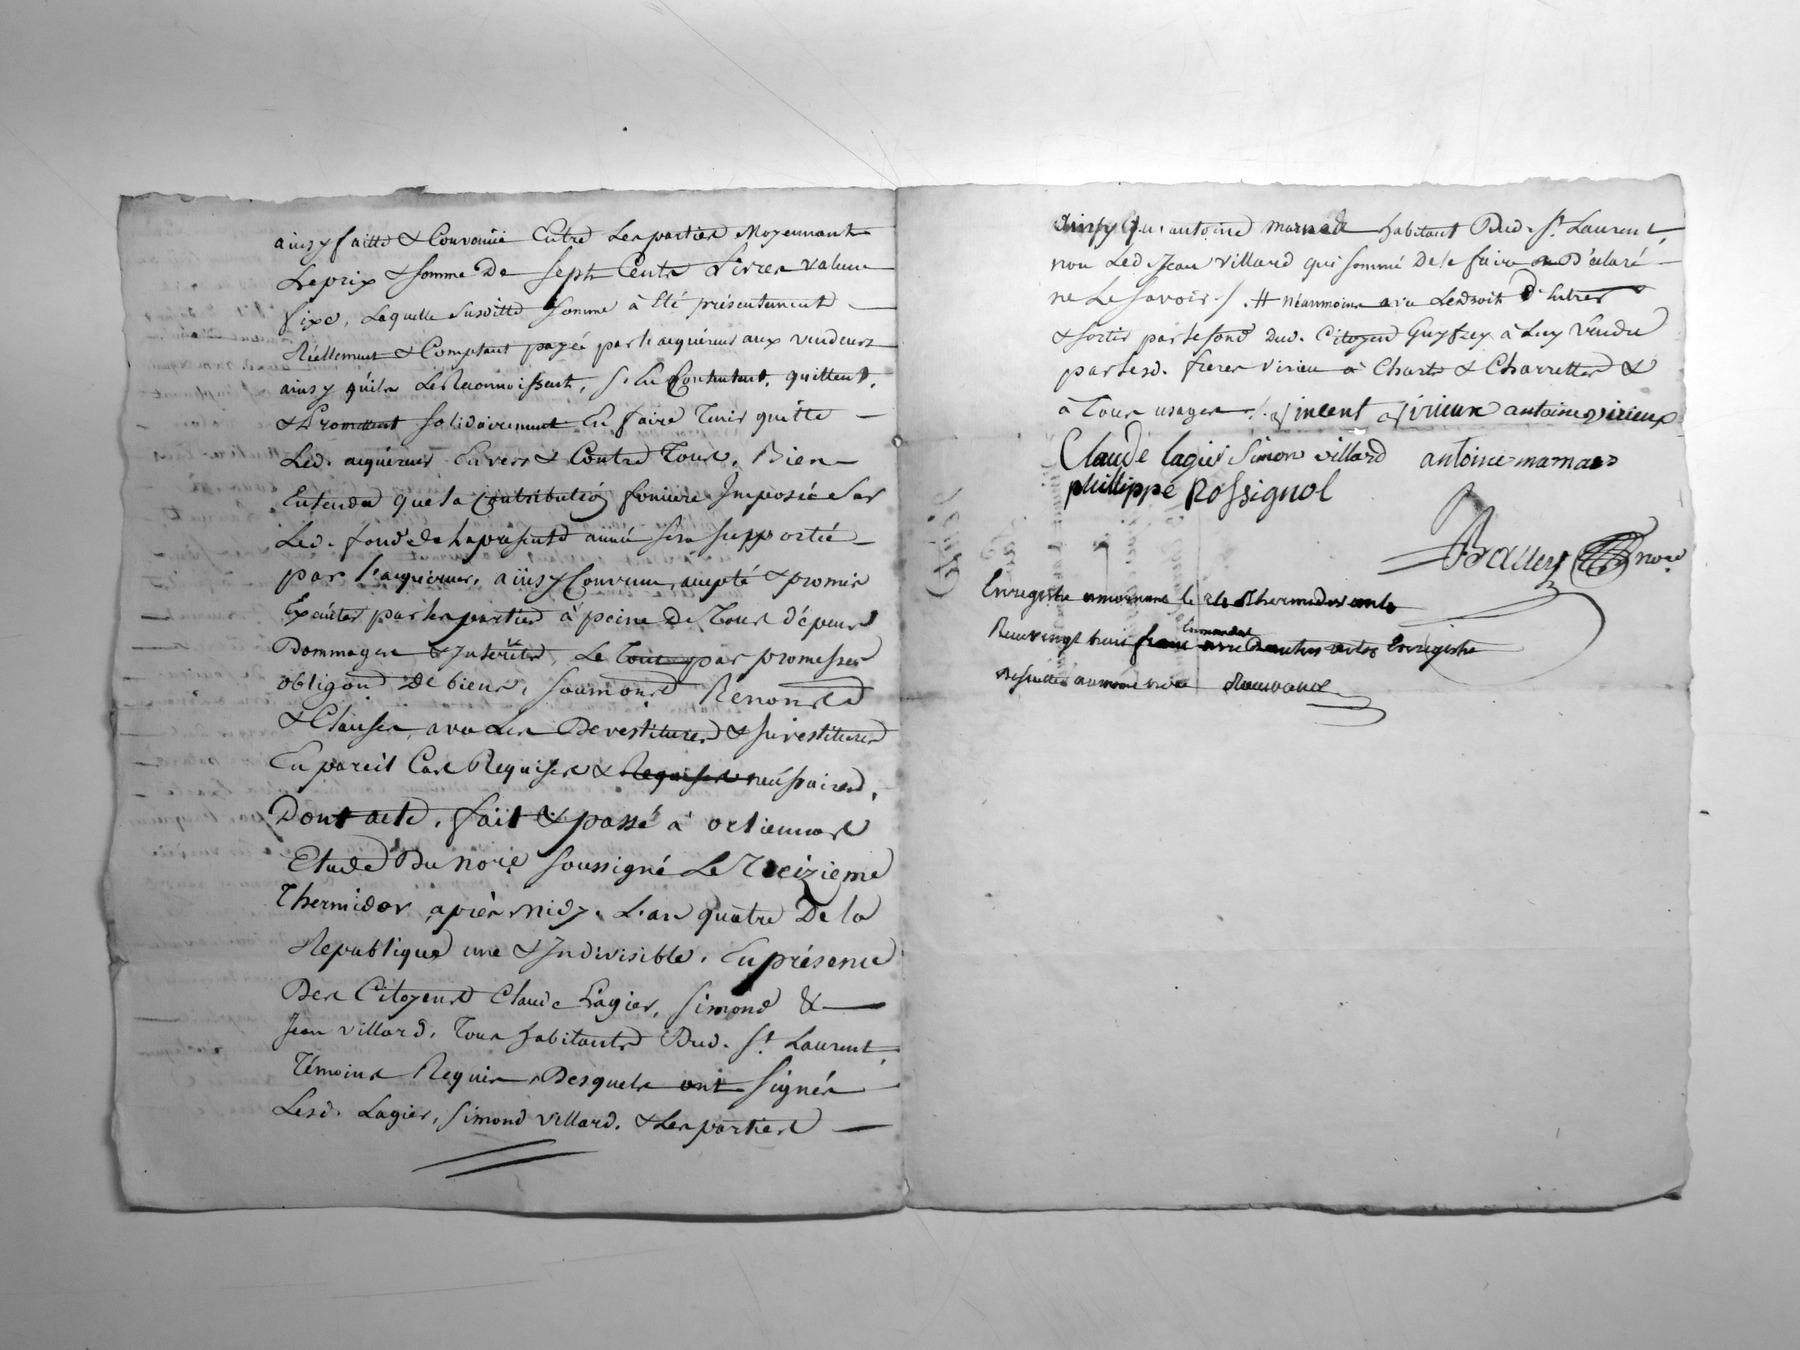 ainsy faitte & Convenüe Entre Les parties Moyennant
Le prix & somme De Sept Cents Livres valeur
fixe, Laquelle Susditte Somme à Eté présentement
Réellement & Comptant payée par l'aquéreur aux vendeurs
ainsy qu'ils Le Reconnoissent, s'En Contentent, quittent,
& Promettent solidairement En faire Tenir quitte
Led. aquéreur Envers & Contre Tous, Bien
Entendu que la Contribution fonciere Imposée Sur
Led. fond de la présente année sera supportée
par l'aquéreur, aiïnsy Convenu, accepté & promis
Exécuter par les parties à peine De Tous dépens
Dommages & Interêts, Le Tout par promesses
obligaon̄ de biens, soumons Renonces
& Clauses, avec Les Devestitures & Investitures
En pareil Cas Requises & nécessaires,
Dont acte, fait & passé à
Etude Du noire soussigné Le Treizieme
Thermidor après midy, L'an quatre De la
République une & Indivisible, En présence
Des Citoyens Claude Lagier, Simond &
Jean villard, Tous habitants Dud. St. Laurent,
Témoins Requis, Desquels ont signés
Lesd. Lagier, Simond villard, & Les parties
Ainsy Qu'antoine marnas habitant Dud. St. Laurent,
non Led. Jean villard qui sommé De le faire a D'éclaré
ne Le savoir /. # néanmoins avec Le droit D'Entrer
& sortir par le fond dud. Citoyen Guyffrey à Luy Vendu
par Lesd. freres Virieu à Chars & Charrettes &
à Tous usages /. vincent virieux antoine virieux
Claude lagier Simon villard antoine marnas
phillippe Rossignol
noire
Enregistré le Thermidor an 4
Reçu vingt huit francs mandat Enregistré